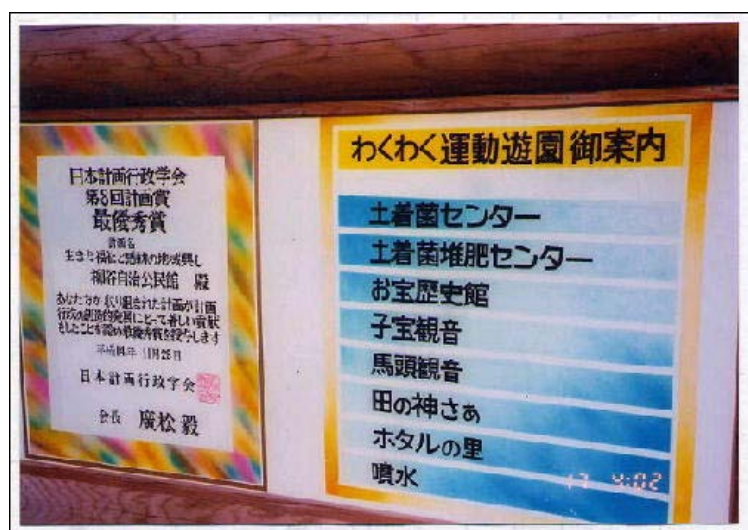 日本計画行政学会
第8回計画賞
最優秀賞
計画名
柳谷自治公民館 殿
あなた方が取り組まれた計画が計画
行政の創造的発展にとって著しい貢献
をしたことを認め最優秀賞を授与します
平成14年 11月28日
日本計画行政学会
会長 廣松 毅
わくわく運動遊園御案内
土着菌センター
土着菌堆肥センター
お宝歴史館
子宝観音
馬頭観音
田の神さぁ
ホタルの里
噴水
17 4:02